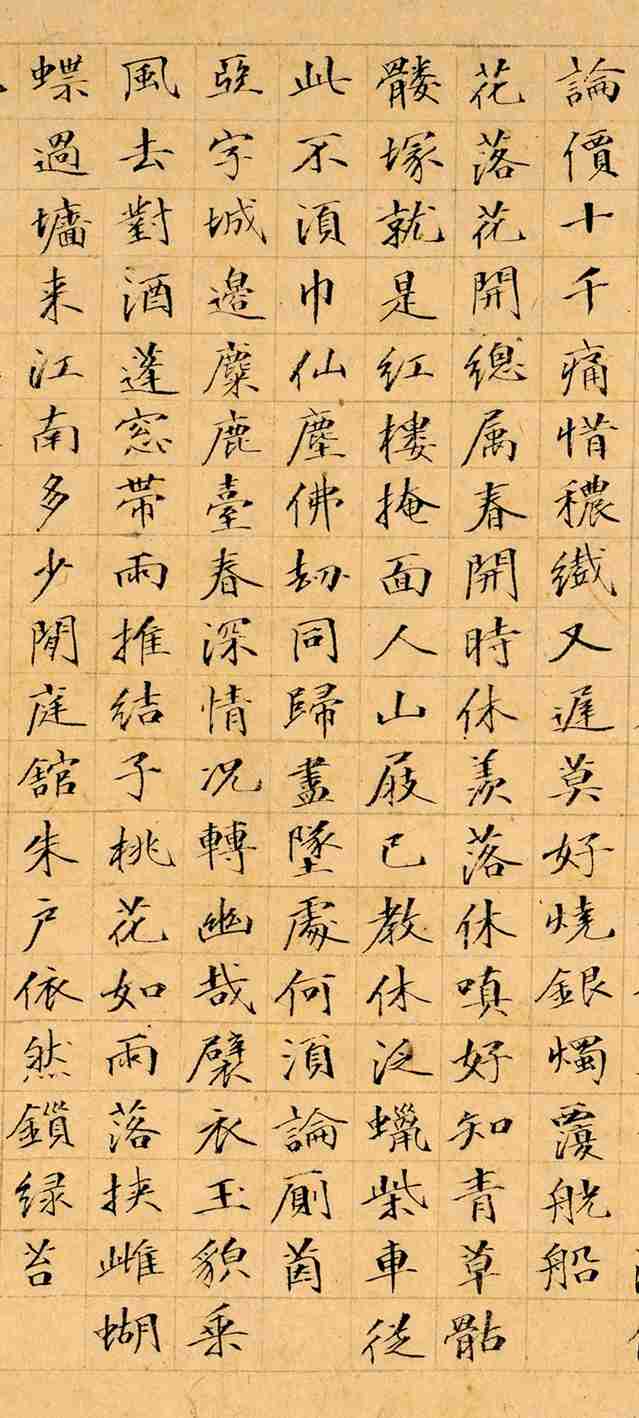 論價十千痛惜穠纖又遲莫好燒銀燭覆觥船
花落花開總属春開時休羨落休嗔好知青草骷
髏塚就是紅樓掩面人山屐已教休泛蠟柴車從
此不須巾仙塵佛劫同歸盡墜處何須論厠茵
亞字城邊麋鹿臺春深情况轉幽哉襞衣玉貌乗
風去對酒蓬窓帶雨推結子桃花如雨落挾雌蝴
蝶過墻来江南多少閒庭舘朱户依然鎖緑苔